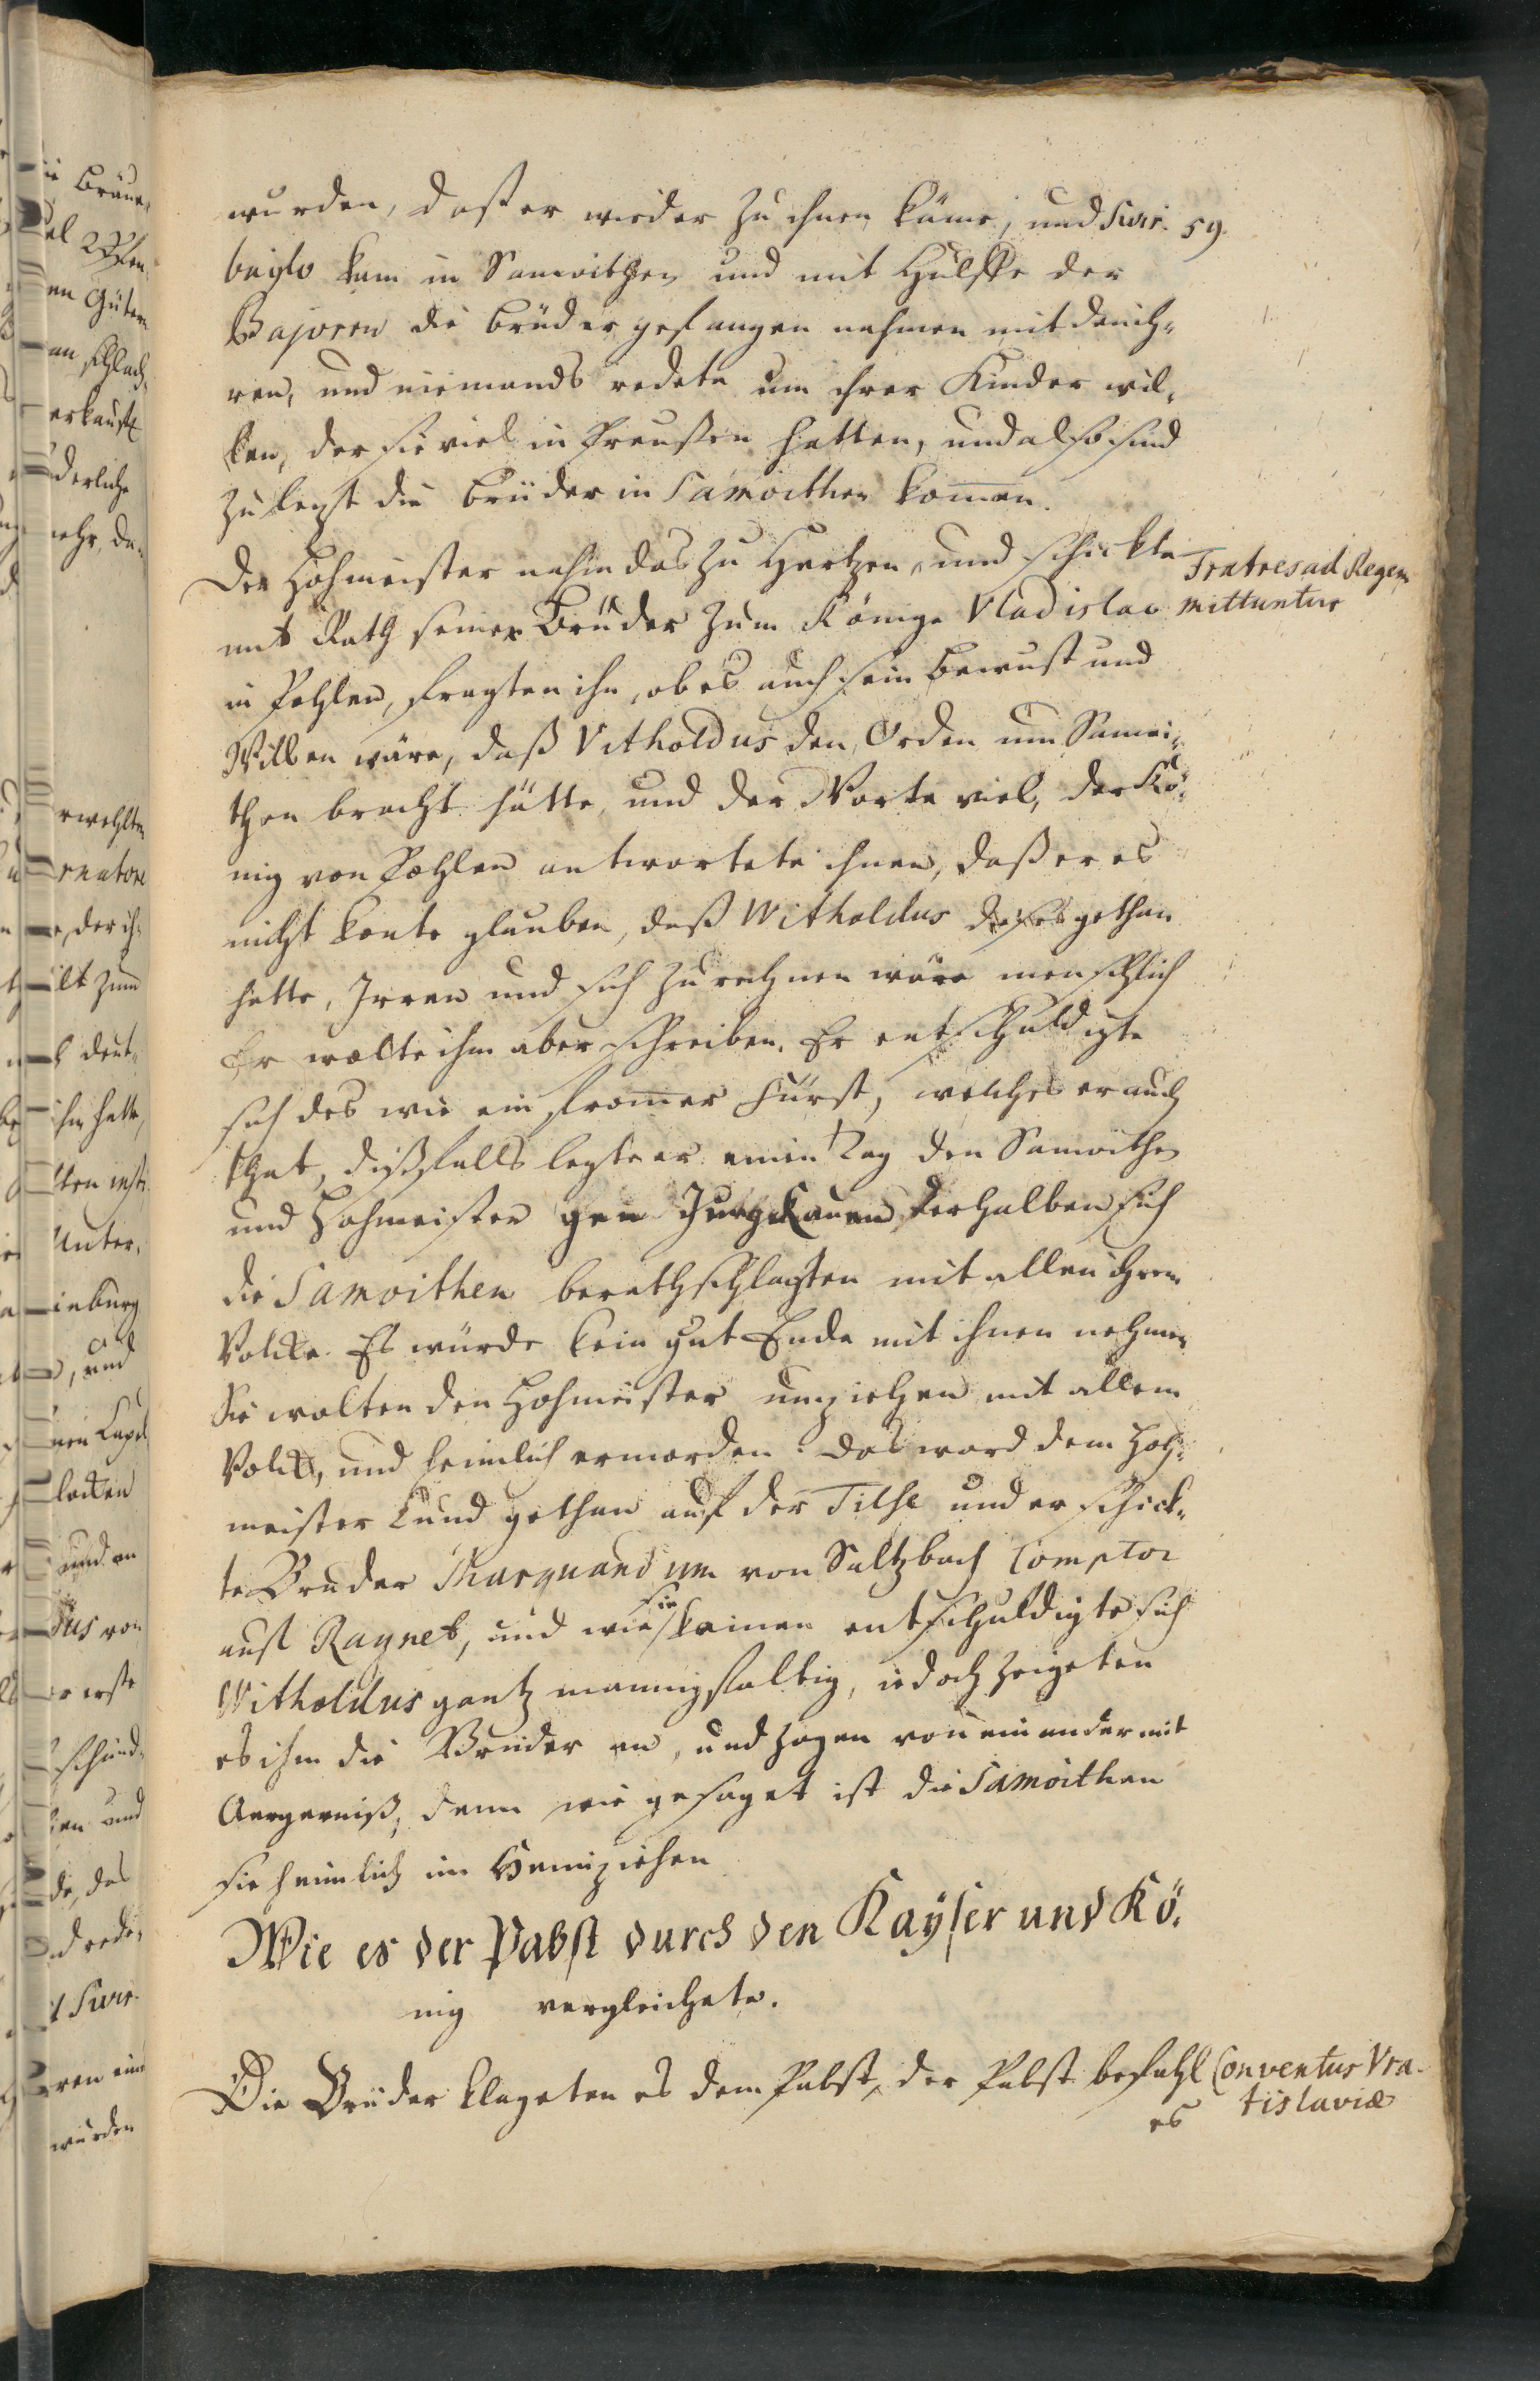 59.
wurden, daß er wieder zu ihnen käme, und Swir-
baylo kam in Samoithen und mit Hülffe der
Bajoren die Brüder gefangen nahmen mit den ih-
ren, und niemands redete um ihrer Kinder wil-
len, der sie viel in Preußen hatten, und also sind
zuletzt die Brüder in Samoithen kommen.
Der Hohmeister nahm das zu Hertzen, und schickte
Fratres ad Regem
mittuntur
mit Rath seiner Brüder zum Könige Vladislao
in Pohlen, fragten ihn, ob es auch sein Bewust und
Willen wäre, daß Vitholdus den Orden um Samoi-
then bracht hätte, und der Worte viel, der Kö-
nig von Pohlen antwortete ihnen, daß er es
nicht konte glauben, daß Witholdus dieses gethan
hette, Irren und sich zurechnen wäre menschlich
Er wolte ihm aber schreiben. Er entschuldigte
sich des wie ein fromer Fürst, welches er auch
that, dißfalls legte er einen Tag den Samoithen
und Hohmeister gen derhalben sich
die Samoithen berathschlagten mit allen ihrem
Volcke. Es würde kein gut Ende mit ihnen nehmen
Sie wolten den Hohmeister umziehen mit allem
Volck, und heimlich ermorden. Das ward dem Hoh-
meister kund gethan auf der Tilse und er schick-
te Bruder Marquandum von Saltzbach Comptor
auf Raynet, und wie sie kamen entschuldigte sich
Witholdus gantz mannigfaltig, iedoch zeigeten
es ihm die Brüder an, und zogen von einander mit
Aergerniß, denn wie gesaget ist die Samoithen
sie heimlich im Heimziehen
Wie es der Pabst durch den Kayser und Kö-
nig vergleichete.
Die Brüder klageten es dem Pabst, der Pabst befahl
es
Conventus Vra-
tislaviæ